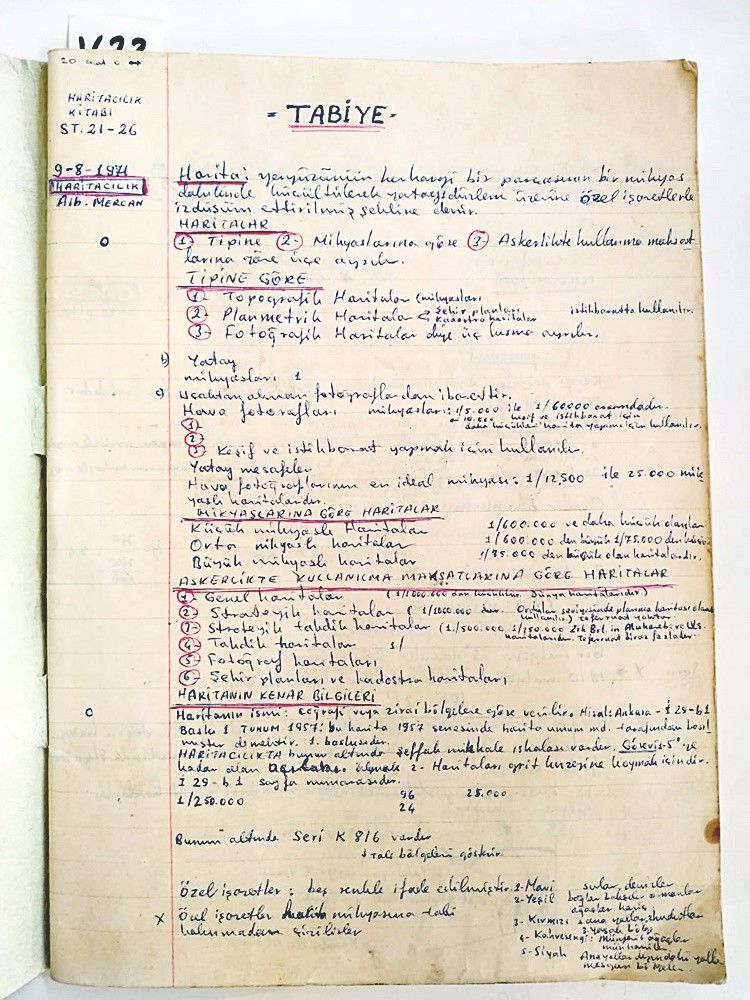 V33
20
HARİTACILIK
KİTABI
ST. 21-26
- TABİYE -
9-8-1971
HARİTACILIK
Alb. MERCAN
Harita: yeryüzünün herhangi bir parçasının bir mikyas
dahilinde küçültülerek üzerine özel işaretlerle
izdüşüm ettirilmiş şekline denir.
HARİTALAR
1- Tipine 2- Mikyaslarına göre 3- Askerlikte kullanma maksat
larına göre üçe ayrılır.
TİPİNE GÖRE
1- Topoğrafik Haritalar (mikyasları
2- Planmetrik Haritalar Şehir planları Kadastro haritalar istihbaratta kullanılır.
3- Fotoğrafik Haritalar diye üç kısma ayrılır.
b) Yatay
mikyasları 1
c) uçaktan alınan fotoğraflardan ibarettir.
Hava fotoğrafları mikyasları: 1/5.000 ile 1/60000 arasındadır.
1- 10.000 keşif ve istihbarat için
2- daha küçükler harita yapımı için kullanılır.
3- Keşif ve istihbarat yapmak için kullanılır.
Yatay mesafeler
Hava fotoğraflarının en ideal mikyası: 1/12,500 ile 25.000 mik
yaslı haritalardır.
MİKYASLARINA GÖRE HARİTALAR
Küçük mikyaslı Haritalar 1/600.000 ve daha küçük olanlar
Orta mikyaslı haritalar 1/600.000 den büyük 1/75.000 den küçük
Büyük mikyaslı haritalar 1/75.000 den büyük olan haritalardır.
ASKERLİKTE KULLANILMA MAKSATLARINA GÖRE HARİTALAR
1- Genel haritalar (1/1.000.000 dan küçüktür. Dünya haritalarıdır.)
2- Stratejik haritalar (1/1000.000 dur. Orduları seviyesinde planma haritası olarak
kullanılır.) teferruat yoktur.
3- Stratejik taktik haritalar (1/500.000 1/250.000 Zırh Brl. in
haritalarıdır. Teferruat biraz fazladır.
4- Taktik haritalar 1/
5- Fotoğraf haritaları
6- Şehir planları ve kadastro haritaları
HARİTANIN KENAR BİLGİLERİ
Haritanın ismi: coğrafi veya zirai bölgelere göre verilir. Misal: Ankara - İ 29-b1
Baskı 1 TUHUM 1957: bu harita 1957 senesinde harita umum md. tarafından basıl
mıştır demektir. 1. baskısıdır.
HARİTACILIKTA bunun altında şeffaf minkale iskalası vardır.
kadar olan açıları ölçmek 2- Haritaları grit kuzeyine koymak içindir.
İ 29-b1 sayfa numarasıdır.
1/250.000 96 25.000
24
Bunun altında Seri K 816 vardır
bölgeleri gösterir.
Özel işaretler: beş renkle ifade edilmiştir. 1- Mavi sular, denizler
2- Yeşil bağlar bahçeler ormanlar
ağaçlar hariç
x Özel işaretler harita mikyasına tabi 3- Kırmızı : ana yollar, hudutlar
2. Yasak bölge
kalınmadan çizilirler 4- Kahverengi: Münferit ağaçlar
münhaniler
5- Siyah Anayollar dışındaki yollar